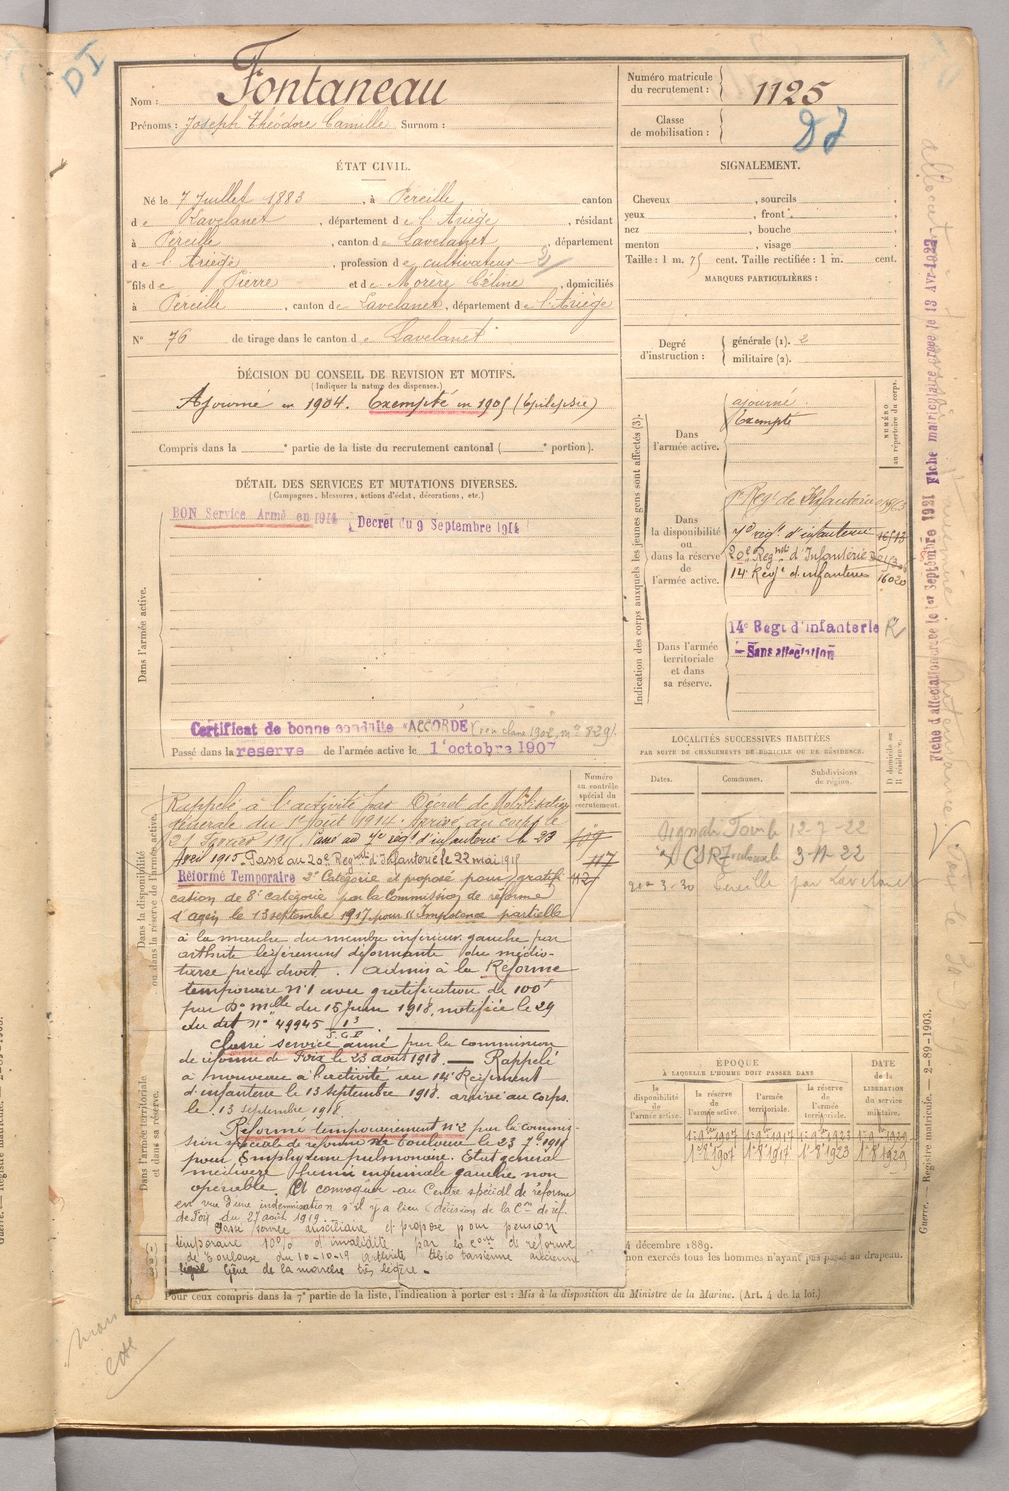 DI
Nom : Fontaneau
Prénoms : Joseph Théodore Camille Surnom :
Numéro matricule du recrutement : 1125
Classe de mobilisation :
ÉTAT CIVIL.
Né le 7 Juillet 1883, à Péreille canton
de Lavelanet, département de l'Ariège, résidant
à Péreille, canton de Lavelanet, département
de l'Ariège, profession de cultivateur
fils de Pierre et de Morère Céline, domiciliés
à Péreille, canton de Lavelanet, département de l'Ariège
N° 76 de tirage dans le canton de Lavelanet
SIGNALEMENT.
Cheveux , sourcils ,
yeux , front ,
nez , bouche ,
menton , visage
Taille : 1 m. 75 cent. Taille rectifiée : 1 m. cent.
MARQUES PARTICULIÈRES :
Degré d'instruction : générale (1). 2
militaire (2).
DÉCISION DU CONSEIL DE REVISION ET MOTIFS.
(Indiquer la nature des dispenses.)
Ajourné en 1904. Exempté en 1905 (Epilepsie)
Compris dans la e partie de la liste du recrutement cantonal ( e portion).
DÉTAIL DES SERVICES ET MUTATIONS DIVERSES.
(Campagnes, blessures, actions d'éclat, décorations, etc.)
BON Service Armé en 1914 (Décret du 9 Septembre 1914
Dans l'armée active.
Certificat de bonne conduite "ACCORDÉ"
Passé dans la reserve de l'armée active le 1 octobre 1907
Indication des corps auxquels les jeunes gens sont affectés (3).
NUMÉRO au répertoire du corps.
Dans l'armée active.
ajourné
Exempté
Dans la disponibilité ou dans la réserve de l'armée active.
Regt de Infanterie
7e régt d'infanterie
20e Regmt d'Infanterie
14e Régt d'infanterie 16020
Dans l'armée territoriale et dans sa réserve.
14e Regt d'infanterie
Sans affectation
LOCALITÉS SUCCESSIVES HABITÉES
PAR SUITE DE CHANGEMENTS DE DOMICILE OU DE RÉSIDENCE.
Dates. Communes. Subdivisions de région. D domicile ou R résidence.
12-7-22
3-11-22
3-30 Péreille par Lavelanet
Numéro au contrôle spécial du recrutement.
Dans la disponibilité ou dans la réserve de l'armée active.
Rappelé à l'activité par Décret de Mobilisation
générale du 1er Août 1914. Arrivé au corps le
21 Janvier 1915. Passé au 7e régt d'infanterie le 23
Avril 1915. Passé au 20e Regmt d'Infanterie le 22 mai 1915
Réformé Temporaire 2e Catégorie et proposé pour gratifi
cation de 8e catégorie par la Commission de réforme
d'Agen le 13 septembre 1917. pour "Impotence partielle
à la marche du membre inférieur gauche par
arthrite légèrement déformante du médio-
tarse pied droit. Admis à la Réforme
temporaire n°1 avec gratification de 100f
par Don mlle du 15 Juin 1918, notifiée le 29
du dit n° 49945
Classé service armé par la commission
de réforme de Foix le 23 août 1918 — Rappelé
à nouveau à l'activité au 14e Régiment
d'infanterie le 13 septembre 1918. arrivé au corps.
le 13 septembre 1918.
Réformé temporairement n°2 par la commis-
sion spéciale de réforme de Toulouse le 23 7bre 1918
pour Emphysème pulmonaire. Etat général
médiocre hernie inguinale gauche non
opérable. Et convoqué au Centre spécial de réforme
en vue d'une indemnisation s'il y a lieu (décision de la Con de réf.
de Foix du 27 août 1919.
Classé service auxiliaire et proposé pour pension
temporaire 10% d'invalidité par la com de réforme
de Toulouse du 10-10-19 arthrite tibio tarsienne ancienne
Gêne de la marche très légère.
Dans l'armée territoriale et dans sa réserve.
ÉPOQUE
À LAQUELLE L'HOMME DOIT PASSER DANS
DATE de la LIBÉRATION du service militaire.
la disponibilité de l'armée active. la réserve de l'armée active. l'armée territoriale. la réserve de l'armée territoriale.
1-8bre 1907 1-8bre 1917 1-8bre 1923 1-8bre 1929
4 décembre 1889.
non exercés tous les hommes n'ayant pas passé au drapeau.
Pour ceux compris dans la 7e partie de la liste, l'indication à porter est : Mis à la disposition du Ministre de la Marine. (Art. 4 de la loi.)
Fiche d'affectation créée le 1er Septembre 1921 Fiche matriculaire créée le 13 Avr 1922
Guerre. — Registre matricule. — 2-89-1903.